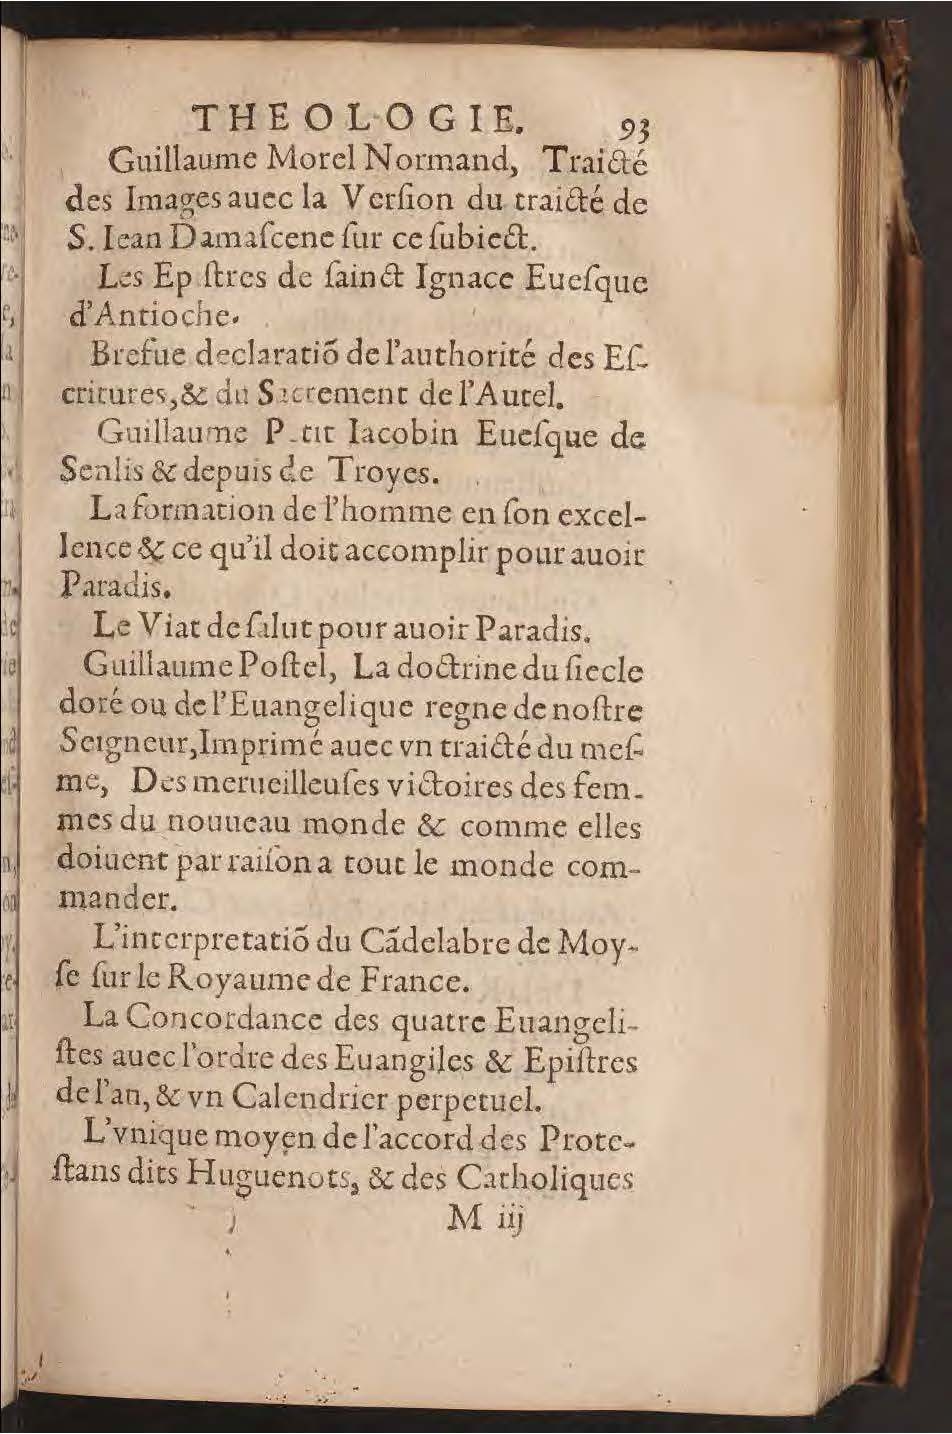 THEOLOGIE. 93
Guillaume Morel Normand, Traicté
des Images auec la Verſion du traicté de
S. Iean Damaſcene ſur ce ſubiect.
Les Epiſtres de ſainct Ignace Eueſque
d'Antioche.
Brefue declaratiõ de l'authorité des Eſ-
critures, & du Sacrement de l'Autel.
Guillaume Petit Iacobin Eueſque de
Senlis & depuis de Troyes.
La formation de l'homme en ſon excel-
lence & ce qu'il doit accomplir pour auoir
Paradis.
Le Viat de ſalut pour auoir Paradis.
Guillaume Poſtel, La doctrine du ſiecle
doré ou de l'Euangelique regne de noſtre
Seigneur, Imprimé auec vn traicté du meſ-
me, Des merueilleuſes victoires des fem-
mes du nouueau monde & comme elles
doiuent par raiſon a tout le monde com-
mander.
L'interpretatiõ du Cãdelabre de Moy-
ſe ſur le Royaume de France.
La Concordance des quatre Euangeli-
ſtes auec l'ordre des Euangiles & Epiſtres
de l'an, & vn Calendrier perpetuel.
L'vnique moyen de l'accord des Prote-
ſtans dits Huguenots, & des Catholiques
M iij